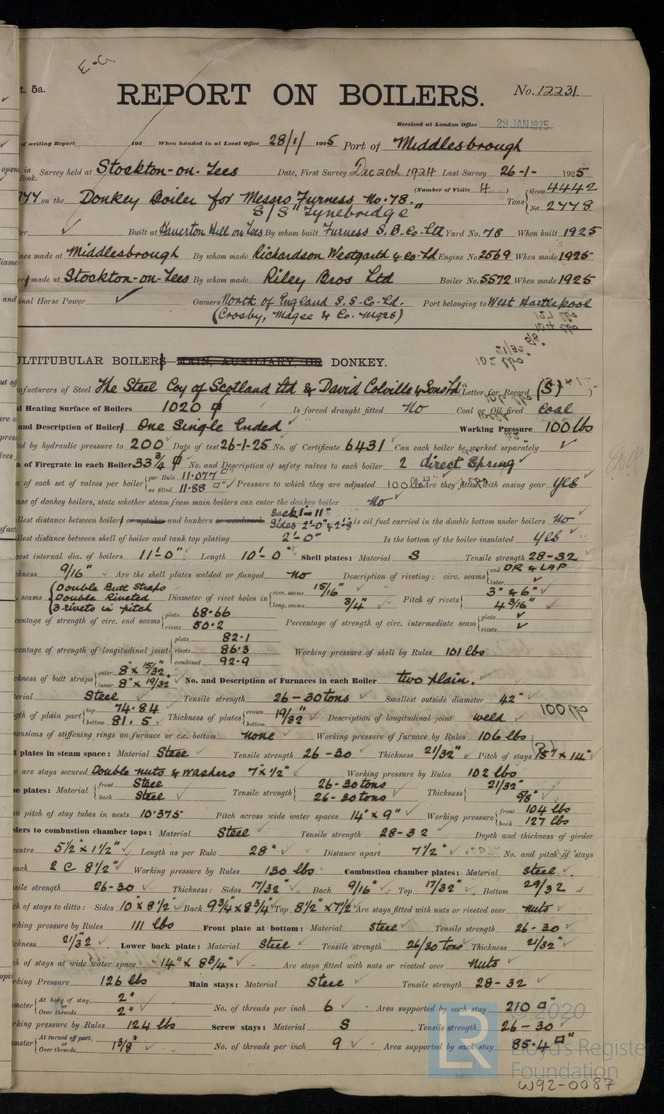 E.G
t. 5a.
REPORT ON BOILERS.
No. 12231.
Received at London Office 29 JAN 1925
of writing Report 190 When handed in at Local Office 28/1/ 1925 Port of Middlesbrough
in Survey held at Stockton-on-Tees Date, First Survey Dec 20th 1924 Last Survey 26-1- 1925
Book.
(Number of Visits 4 ) Gross 4442
on the Donkey Boiler for Messrs Furness No. 78. Tons Net 2778
S/S "Tynebridge"
Built at Haverton Hill on Tees By whom built Furness S.B. Co. Ltd Yard No. 78 When built 1925
nes made at Middlesbrough By whom made Richardson Westgarth & Co. Ltd Engine No. 2569 When made 1925
made at Stockton-on-Tees By whom made Riley Bros Ltd Boiler No. 5572 When made 1925
nal Horse Power Owners North of England S.S. Co. Ld. Port belonging to West Hartlepool
(Crosby, Magee & Co. Mgrs)
ULTITUBULAR BOILERS MAIN, AUXILIARY, OR DONKEY.
ufacturers of Steel The Steel Coy of Scotland Ltd & David Colville & Sons Ltd (Letter for Record (S) )
al Heating Surface of Boilers 1020 Is forced draught fitted No Coal or Oil fired Coal
and Description of Boilers One Single Ended Working Pressure 100 lbs
ed by hydraulic pressure to 200 Date of test 26-1-25 No. of Certificate 6431 Can each boiler be worked separately
a of Firegrate in each Boiler 33 3/4 No. and Description of safety valves to each boiler 2 direct Spring
a of each set of valves per boiler per Rule 11.077 as fitted 11.88 Pressure to which they are adjusted 100 lbs Are they fitted with easing gear Yes
ase of donkey boilers, state whether steam from main boilers can enter the donkey boiler No
llest distance between boilers or uptakes and bunkers or woodwork Back 1-11" Sides 2'-0" & 2'-3 Is oil fuel carried in the double bottom under boilers No
llest distance between shell of boiler and tank top plating 2'-0" Is the bottom of the boiler insulated Yes
est internal dia. of boilers 11'-0" Length 10'-0" Shell plates: Material S Tensile strength 28-32
kness 9/16" Are the shell plates welded or flanged No Description of riveting: circ. seams end DR & LAP inter.
seams Double Butt Straps Double Riveted 3 rivets in pitch Diameter of rivet holes in circ. seams 15/16" long. seams 3/4" Pitch of rivets 3" & 6" 4 3/16"
entage of strength of circ. end seams plate 68.66 rivets 50.2 Percentage of strength of circ. intermediate seam plate rivets
entage of strength of longitudinal joint plate 82.1 rivets 86.3 combined 92.9 Working pressure of shell by Rules 101 lbs
ckness of butt straps outer 8" x 15/32" inner 8" x 19/32" No. and Description of Furnaces in each Boiler two plain.
erial Steel Tensile strength 26-30 tons Smallest outside diameter 42"
gth of plain part top 74.84 bottom 81.5 Thickness of plates crown bottom 19/32" Description of longitudinal joint weld
ensions of stiffening rings on furnace or c.c. bottom None Working pressure of furnace by Rules 106 lbs
plates in steam space: Material Steel Tensile strength 26-30 Thickness 21/32" Pitch of stays 15" x 14"
w are stays secured Double nuts & washers 7" x 1/2" Working pressure by Rules 102 lbs
e plates: Material front Steel back Steel Tensile strength 26-30 tons 26-30 tons Thickness 21/32" 5/8"
n pitch of stay tubes in nests 10.375 Pitch across wide water spaces 14" x 9" Working pressure front 104 lbs back 127 lbs
ders to combustion chamber tops: Material Steel Tensile strength 28-32 Depth and thickness of girder
centre 5 1/2" x 1 1/2" Length as per Rule 28" Distance apart 7 1/2" No. and pitch of stays
each 2 @ 8 1/2" Working pressure by Rules 130 lbs Combustion chamber plates: Material Steel
sile strength 26-30 Thickness: Sides 17/32" Back 9/16" Top 17/32" Bottom 29/32
ch of stays to ditto: Sides 10" x 8 1/2" Back 9 3/4" x 8 3/4" Top 8 1/2" x 7 1/2 Are stays fitted with nuts or riveted over Nuts
rking pressure by Rules 111 lbs Front plate at bottom: Material Steel Tensile strength 26-30
ckness 21/32 Lower back plate: Material Steel Tensile strength 26/30 tons Thickness 21/32"
ch of stays at wide water space 14" x 8 3/4" Are stays fitted with nuts or riveted over Nuts
king Pressure 126 lbs Main stays: Material Steel Tensile strength 28-32
meter At body of stay, or Over threads 2" 2" No. of threads per inch 6 Area supported by each stay 210
king pressure by Rules 124 lbs Screw stays: Material S Tensile strength 26-30
meter At turned off part, or Over threads 1 3/8" No. of threads per inch 9 Area supported by each stay 85.4
© 2020
LR Lloyd's Register
Foundation
W92-0087